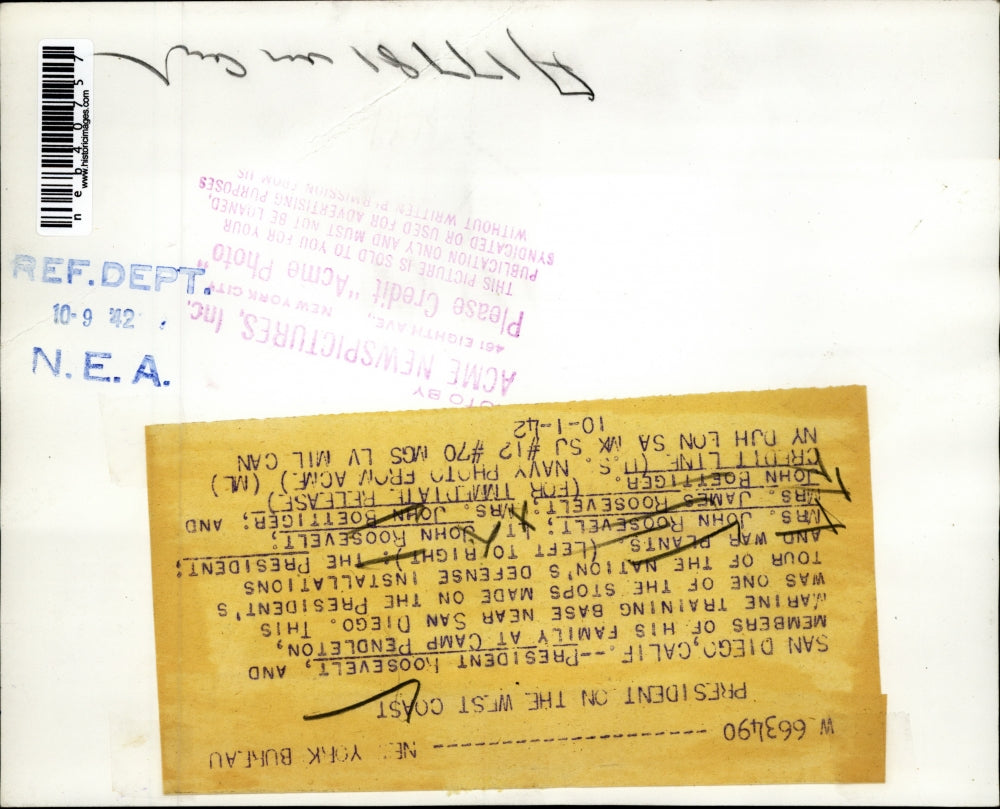 neb40757
www.historicimages.com
REF.DEPT.
10-9 '42
N.E.A.
W 663490 ---------------------- NEW YORK BUREAU
PRESIDENT ON THE WEST COAST
SAN DIEGO,CALIF.--PRESIDENT ROOSEVELT, AND
MEMBERS OF HIS FAMILY AT CAMP PENDLETON,
MARINE TRAINING BASE NEAR SAN DIEGO. THIS
WAS ONE OF THE STOPS MADE ON THE PRESIDENT'S
TOUR OF THE NATION'S DEFENSE INSTALLATIONS
AND WAR PLANTS. (LEFT TO RIGHT): THE PRESIDENT;
MRS. JOHN ROOSEVELT; LT. JOHN ROOSEVELT;
MRS. JAMES ROOSEVELT; MRS. JOHN BOETTIGER; AND
JOHN BOETTIGER. (FOR IMMEDIATE RELEASE)
CREDIT LINE (U.S. NAVY PHOTO FROM ACME) (ML)
NY DJH LON SA MX SJ #12 #70 MGS LV MIL CAN
10-1-42
OTO BY
ACME NEWSPICTURES, Inc.
461 EIGHTH AVE., NEW YORK CITY
Please Credit "Acme Photo"
THIS PICTURE IS SOLD TO YOU FOR YOUR
PUBLICATION ONLY AND MUST NOT BE LOANED,
SYNDICATED OR USED FOR ADVERTISING PURPOSES
WITHOUT WRITTEN PERMISSION FROM US